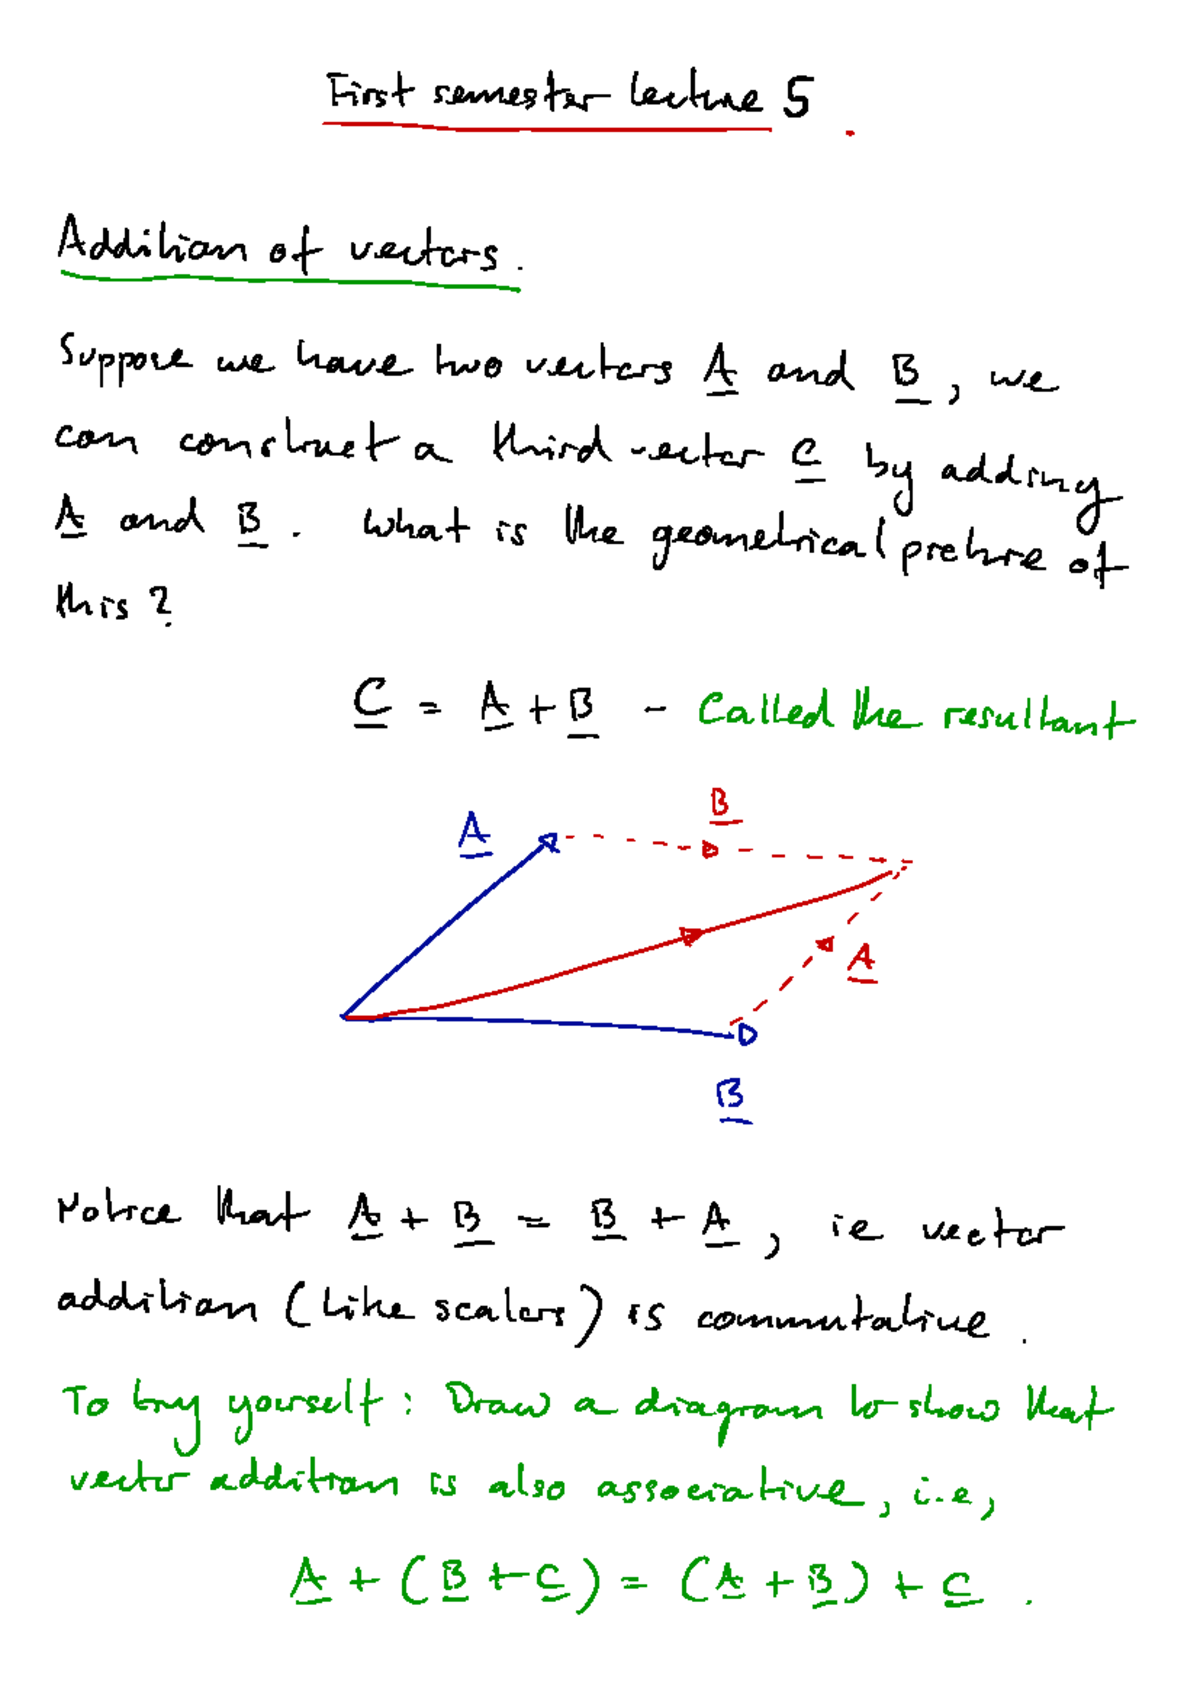 First semester lecture 5.
Addition of vectors.
Suppose we have two vectors A and B, we
can construct a third vector C by adding
A and B. What is the geometrical picture of
this?
C = A + B - Called the resultant
B
A
A
B
Notice that A + B = B + A, ie vector
addition (like scalars) is commutative.
To try yourself: Draw a diagram to show that
vector addition is also associative, i.e,
A + (B + C) = (A + B) + C.